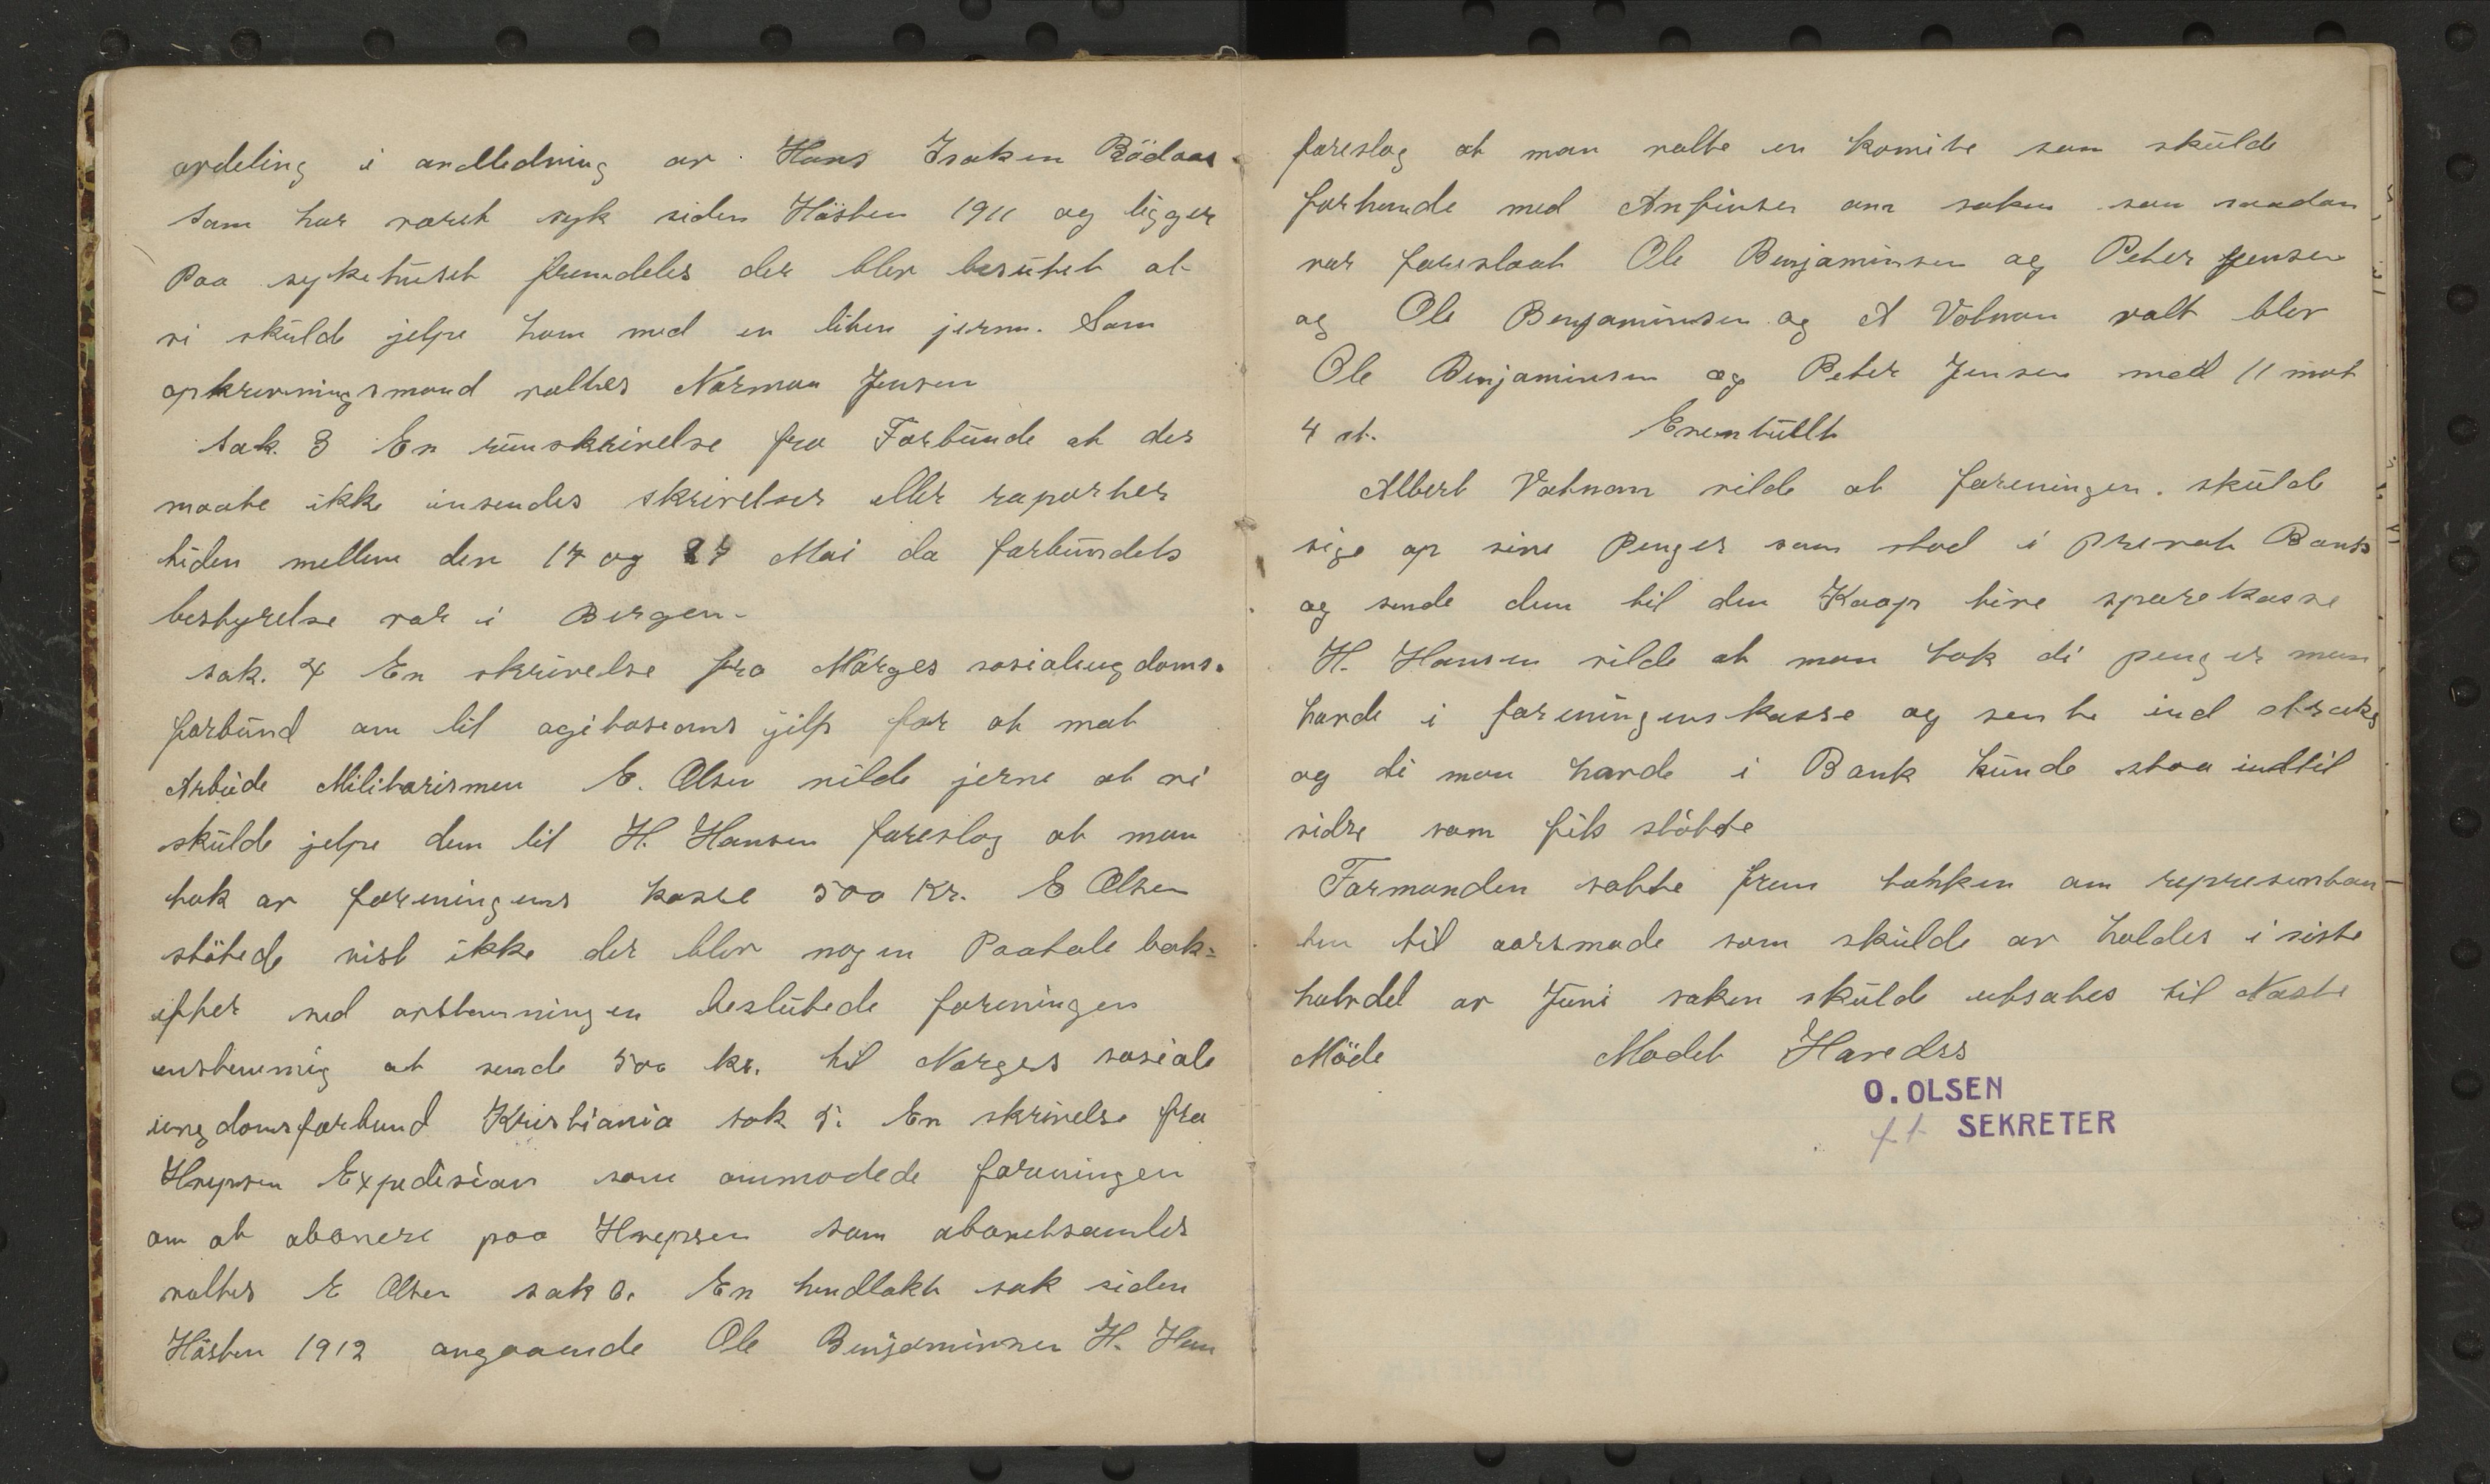 avdeling i andledning av Hans Isaksen Bödaas
som har været syk siden Hösten 1911 og ligger
Paa sykehuset fremdeles der blev besutet at
vi skulde jelpe ham med en liten jerm. Som
opkrevningsmand valtes Norman Jensen
Sak. 3 En runskrivelse fra Forbunde at der
maate ikke insendes skrivelser eller raporter
tiden mellem den 17 og 27 Mai da forbundets
bestyrelse var i Bergen.
sak. 4 En skrivelse fra Norges sosialungdoms.
forbund om lit agitasions jelp for at mot
Arbeide Militarismen E. Olsen vilde jerne at vi
skulde jelpe dem lit H. Hansen foreslog at man
tok av foreningens kasse 500 Kr. E Olsen
stötede vist ikke der blev nogen Paatale bak-
efter ved avstemningen beslutede foreningen
enstemmig at sende 500 kr. til Norges sosiale
ungdomsforbund Kristiania sak 5. En skrivelse fra
Hvepsen Expedision som anmodede foreningen
om at abonere paa Hvepsen som abonetsamler
valtes E Olsen sak 6. En hendlakt sak siden
Hösten 1912 angaaende Ole Benjaminsen H. Han
foreslog at man valte en komite som skulde
forhande med Anfinsen om saken som saadan
var foreslaat Ole Benjaminsen og Peter Jensen
og Ole Benjaminsen og A Votman valt blev
Ole Benjaminsen og Peter Jensen med 11 mot
4 st. Eventuellt
Albert Vatnam vilde at foreningen. skulde
sige op sine Penger som stod i Prevat Bank
og sende dem til den Koop tive sparekasse
H. Hansen vilde at man tok di penger man
havde i foreningens kasse og sente ind straks
og di man havde i Bank kunde staa indtil
vidre som fik stötte
Formanden satte frem tanken om representan
ten til aarsmöde som skulde av holdes i siste
halvdel av Juni saken skulde utsates til Næste
Möde Modet Havedss
O. OLSEN
ft SEKRETER